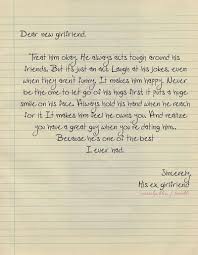 Dear new girlfriend,
Treat him okay. He always acts tough around his
friends. But it's just an act. Laugh at his jokes, even
when they aren't funny. It makes him happy. Never
be the one to let go of his hugs first it puts a huge
smile on his face. Always hold his hand when he reaches
for it. It makes him feel he owns you. And realize
you have a great guy when you're dating him...
Because he's one of the best
I ever had.
Sincerely,
His ex girlfriend